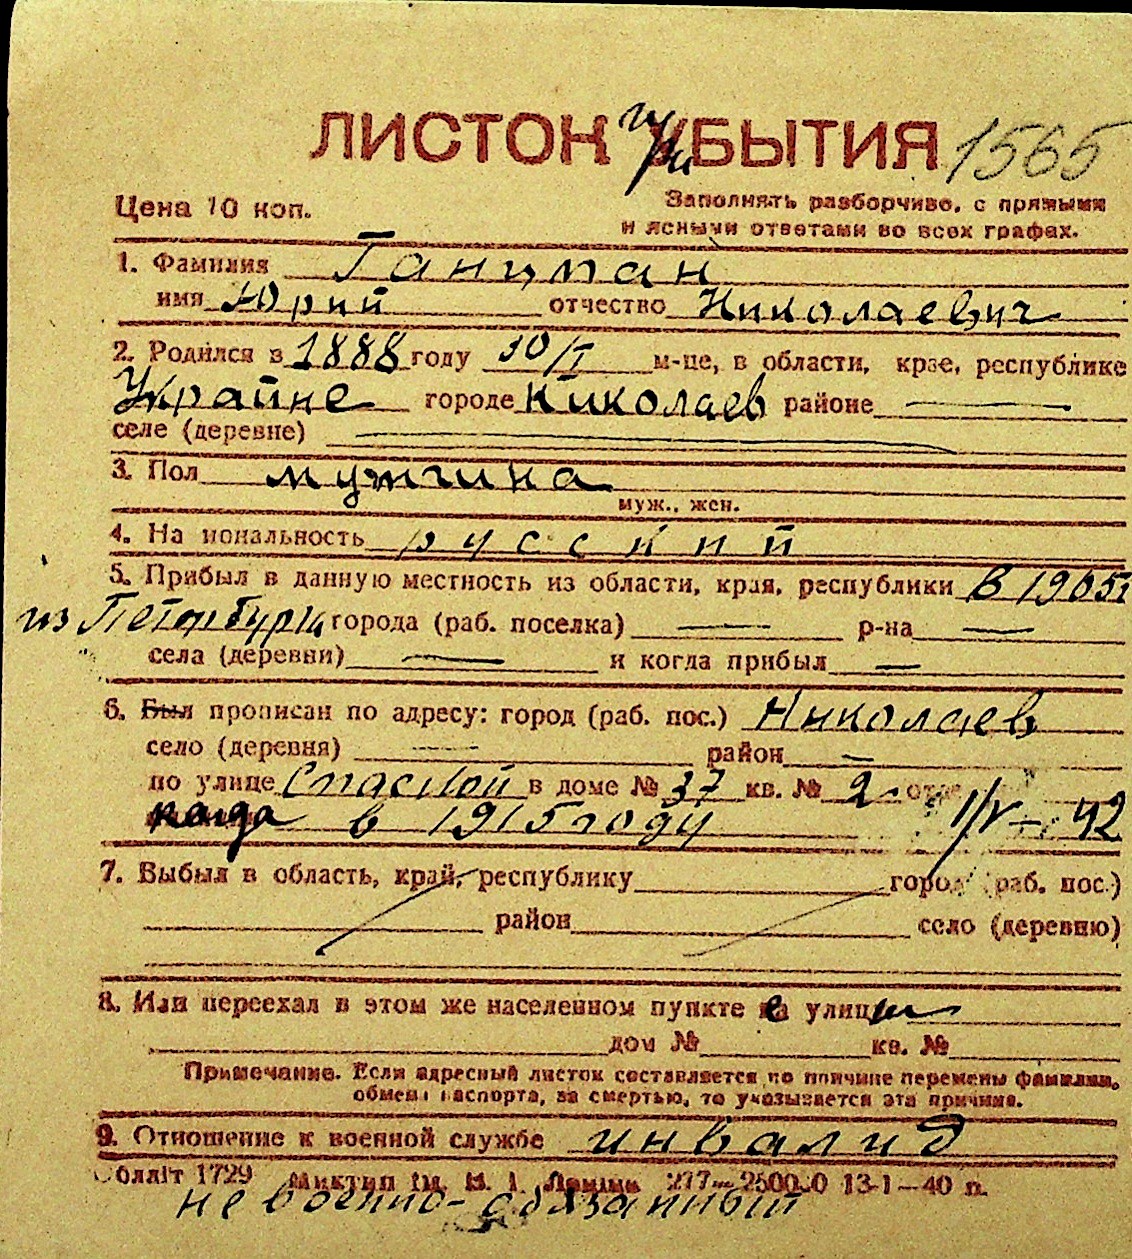 ЛИСТОК при УБЫТИЯ 1565
Цена 10 коп.
Заполнять разборчиво, с прямыми
и ясными ответами во всех графах.
1. Фамилия Ганцман
имя Юрий отчество Николаевич
2. Родился в 1888 году 10/I м-це, в области, крае, республике
Украйне городе Николаев районе —
селе (деревне) —
3. Пол мужчина
муж., жен.
4. Национальность русский
5. Прибыл в данную местность из области, края, республики в 1905
из Петербурга города (раб. поселка) — р-на —
села (деревни) — и когда прибыл —
6. Был прописан по адресу: город (раб. пос.) Николаев
село (деревня) — район —
по улице Спаской в доме № 37 кв. № 2
когда в 1915 году 1/V – 42
7. Выбыл в область, край, республику город (раб. пос.)
район село (деревню)
8. Или переехал в этом же населенном пункте с улицы —
дом № кв. №
Примечание. Если адресный листок составляется по причине перемены фамилии,
обмена паспорта, за смертью, то указывается эта причина.
9. Отношение к военной службе инвалид
Обллiт 1729 Миктип iм. В. I. Ленiна 277—25000 13-1—40 п.
не военно-обязанный